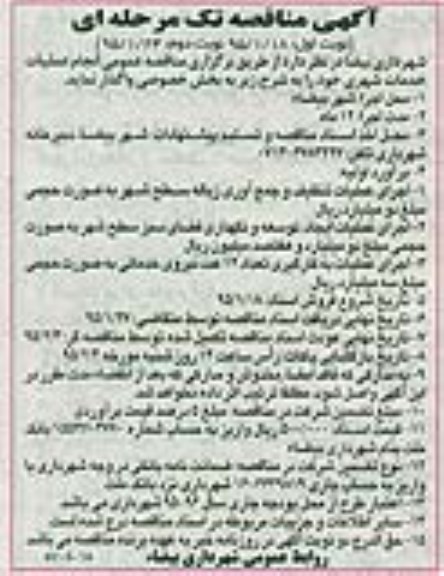 آگهی مناقصه تک مرحله ای
(نوبت اول: ۹۵/۱/۱۸ نوبت دوم: ۹۵/۱/۲۳)
شهرداری بیضا در نظر دارد از طریق برگزاری مناقصه عمومی انجام عملیات
خدمات شهری خود را به شرح زیر به بخش خصوصی واگذار نماید.
۱- محل اجرا: شهر بیضاء
۲- مدت اجرا: ۱۲ ماه
۳- محل اخذ اسناد مناقصه و تسلیم پیشنهادات: شهر بیضا دبیرخانه
شهرداری تلفن:
۴- برآورد اولیه
۱- اجرای عملیات تنظیف و جمع آوری زباله سطح شهر به صورت حجمی
مبلغ دو میلیارد ریال
۲- اجرای عملیات ایجاد، توسعه و نگهداری فضای سبز سطح شهر به صورت
حجمی مبلغ دو میلیارد و هفتصد میلیون ریال
۳- اجرای عملیات به کارگیری تعداد ۱۲ نفر نیروی خدماتی به صورت حجمی
مبلغ سه میلیارد ریال
۵- تاریخ شروع فروش اسناد: ۹۵/۱/۱۸
۶- تاریخ نهایی دریافت اسناد مناقصه توسط متقاضی:
۷- تاریخ نهایی عودت اسناد مناقصه تکمیل شده توسط مناقصه گر:
۸- تاریخ بازگشایی پاکات: رأس ساعت ۱۲ روز شنبه مورخه
۹- به مدارکی که فاقد امضا، مخدوش و مدارکی که بعد از انقضاء مدت مقرر در
این آگهی واصل شود، مطلقا ترتیب اثر داده نخواهد شد.
۱۰- مبلغ تضمین شرکت در مناقصه: مبلغ ۵ درصد قیمت برآوردی
۱۱- قیمت اسناد: ۵۰۰/۰۰۰ ریال واریز به حساب شماره بانک
ملت بنام شهرداری بیضاء
۱۲- نوع تضمین شرکت در مناقصه: ضمانت نامه بانکی در وجه شهرداری یا
واریز به حساب جاری شهرداری نزد بانک ملت
۱۳- اعتبار طرح از محل بودجه جاری سال شهرداری می باشد.
۱۴- سایر اطلاعات و جزییات مربوطه در اسناد مناقصه درج شده است.
۱۵- حق الدرج دو نوبت آگهی در روزنامه خبر به عهده برنده مناقصه می باشد.
روابط عمومی شهرداری بیضاء